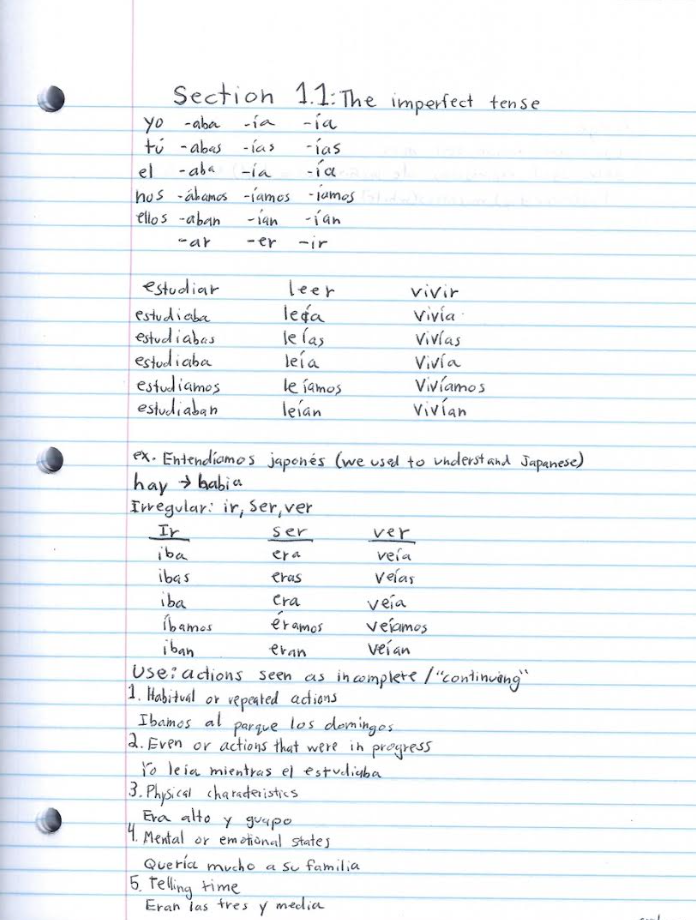 Section 1.1: The imperfect tense
yo -aba -ía -ía
tú -abas -ías -ías
el -aba -ía -ía
nos -ábamos -íamos -íamos
ellos -aban -ían -ían
-ar -er -ir
estudiar leer vivir
estudiaba leía vivía
estudiabas leías vivías
estudiaba leía vivía
estudiamos leíamos vivíamos
estudiaban leían vivían
ex. Entendíamos japonés (we used to understand Japanese)
hay → habia
Irregular: ir, ser, ver
Ir ser ver
iba era veía
ibas eras veías
iba era veía
íbamos éramos veíamos
iban eran veían
Use: actions seen as incomplete / "continuing"
1. Habitual or repeated actions
Ibamos al parque los domingos
2. Even or actions that were in progress
Yo leia mientras el estudiaba
3. Physical characteristics
Era alto y guapo
4. Mental or emotional states
Quería mucho a su familia
5. Telling time
Eran las tres y media